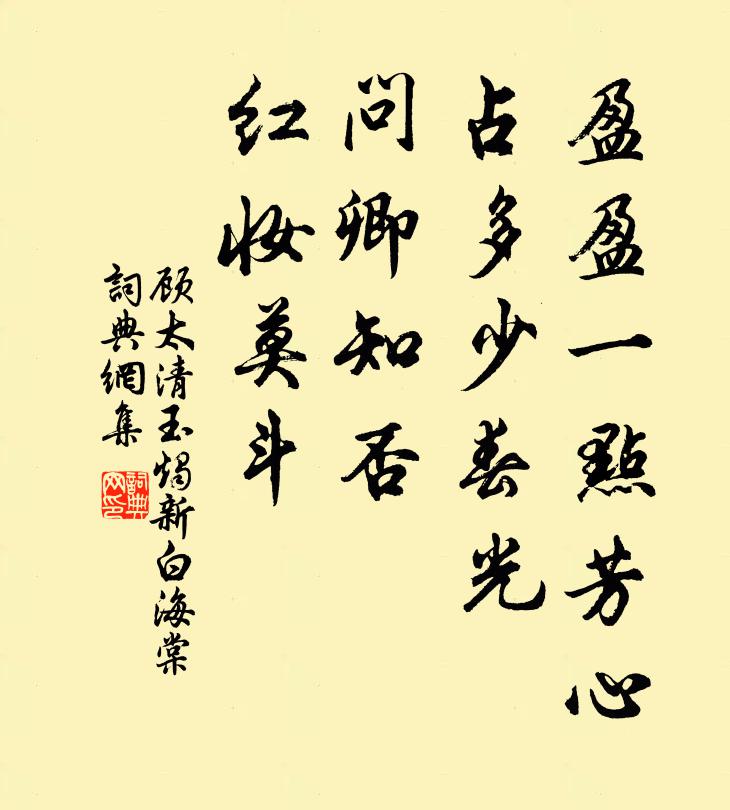 盈盈一點芳心
占多少春光
问卿知否
红妆莫斗
顾太清玉烛新白海棠
詞典網集
詞典網印